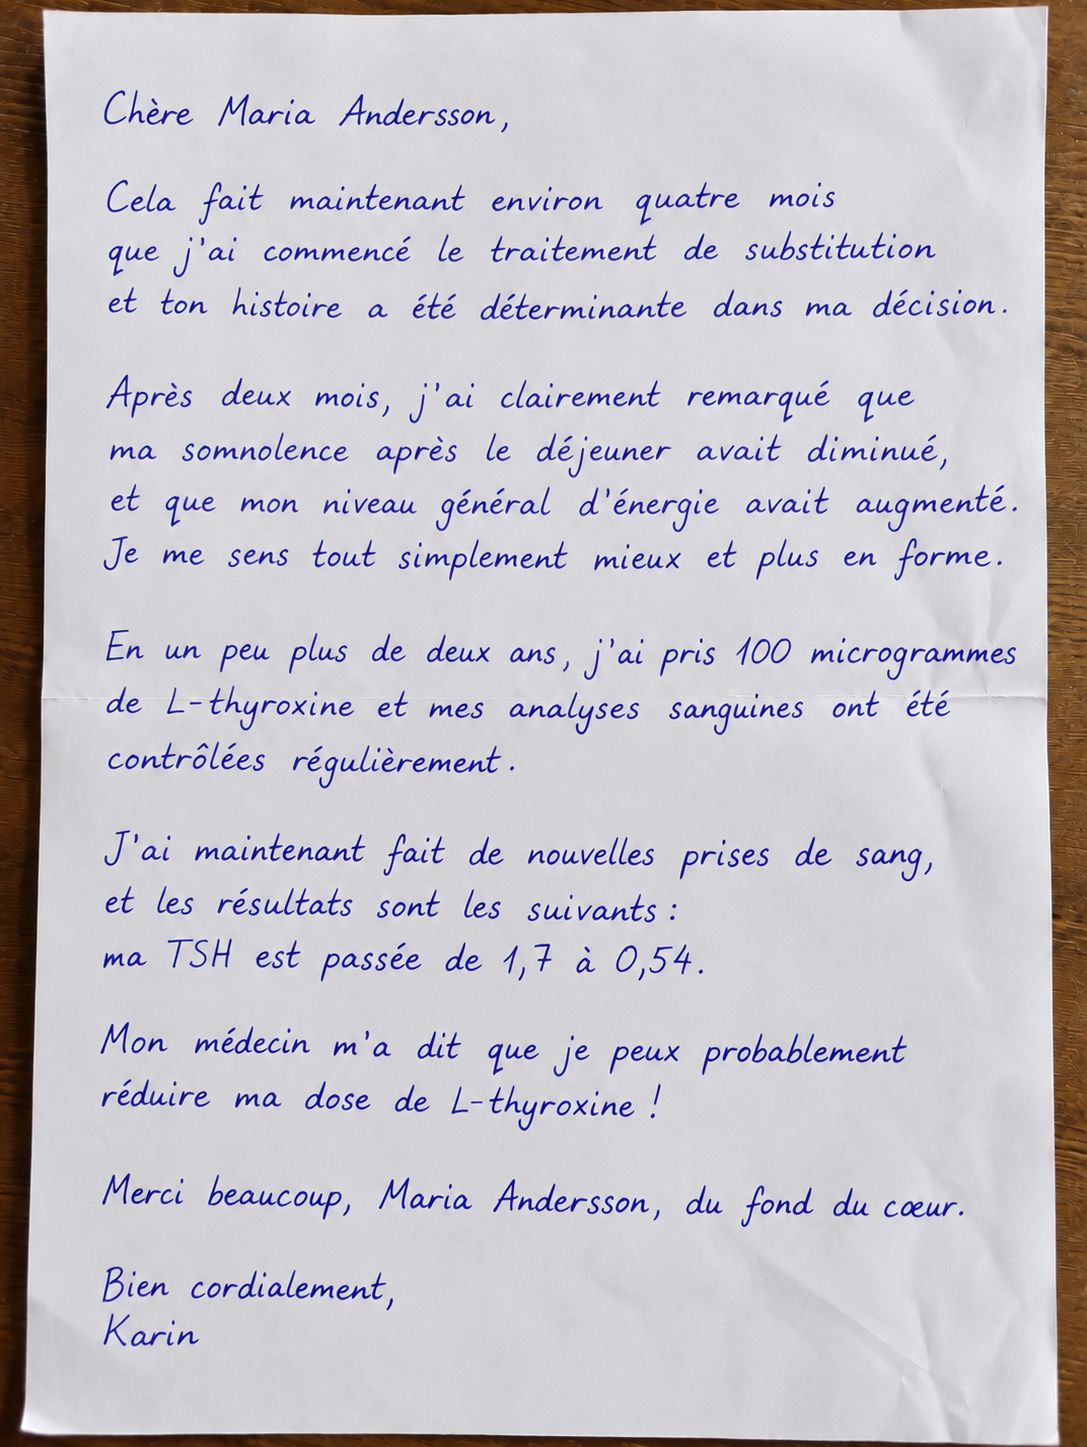 Chère Maria Andersson,
Cela fait maintenant environ quatre mois
que j'ai commencé le traitement de substitution
et ton histoire a été déterminante dans ma décision.
Après deux mois, j'ai clairement remarqué que
ma somnolence après le déjeuner avait diminué,
et que mon niveau général d'énergie avait augmenté.
Je me sens tout simplement mieux et plus en forme.
En un peu plus de deux ans, j'ai pris 100 microgrammes
de L-thyroxine et mes analyses sanguines ont été
contrôlées régulièrement.
J'ai maintenant fait de nouvelles prises de sang,
et les résultats sont les suivants :
ma TSH est passée de 1,7 à 0,54.
Mon médecin m'a dit que je peux probablement
réduire ma dose de L-thyroxine !
Merci beaucoup, Maria Andersson, du fond du cœur.
Bien cordialement,
Karin